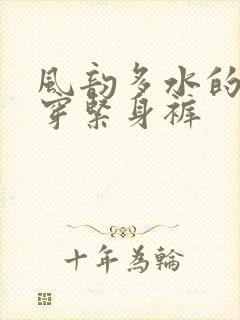 風韵多水的
穿緊身裤
十年為輪